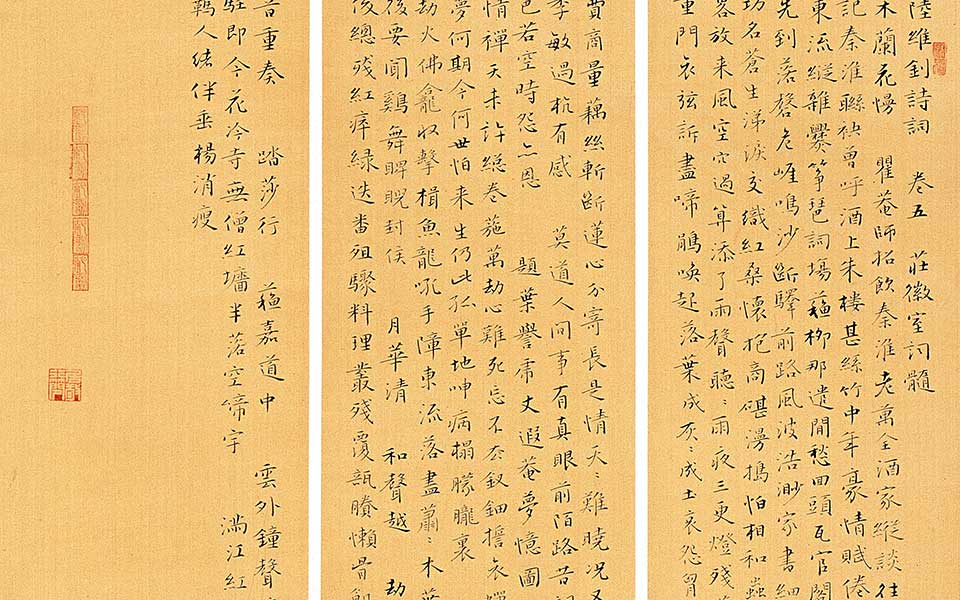 陸維釗詩詞　卷五　莊徽室詞髓
木蘭花慢　瞿菴師招飲秦淮老萬全酒家縱談往
記秦淮聯袂曾呼酒上朱樓甚絲竹中年豪情賦倦
東流縱雜爨箏琶詞場蘓柳那遣閒愁回頭瓦官閣
先到落磬危崖鳴沙斷驛前路風波浩渺家書細
功名蒼生涕淚交織紅桑懷抱高碪漫搗怕相和蟲
客放来風空穴過算添了雨聲聽〻雨夜三更燈殘
重門哀弦訴盡啼鵑喚起落葉成灰〻成土哀怨胃
賈商量藕絲斬斷蓮心分寄長是情天〻難曉况又
季敏過杭有感　莫道人间事有真眼前陌路昔
色若空時怨亦恩　題葉譽虎丈遐菴夢憶圖
情禪天未許總卷葹萬劫心難死忘不奈釵鈿擔哀蟬
夢何期今何世怕来生仍此孤單地呻病榻朦朧裏
劫火佛龕収擊楫魚龍吼手障東流落盡蕭〻木葉
後要聞鷄舞睥睨封侯　月華清　和聲越　劫
後總殘紅瘁緑迭番殂驟料理叢殘覆瓿賸懶骨
音重奏　踏莎行　蘓嘉道中　雲外鐘聲
駐即今花冷寺無僧紅墻半落空啼宇　滿江紅
鵡人绪伴垂楊消瘦